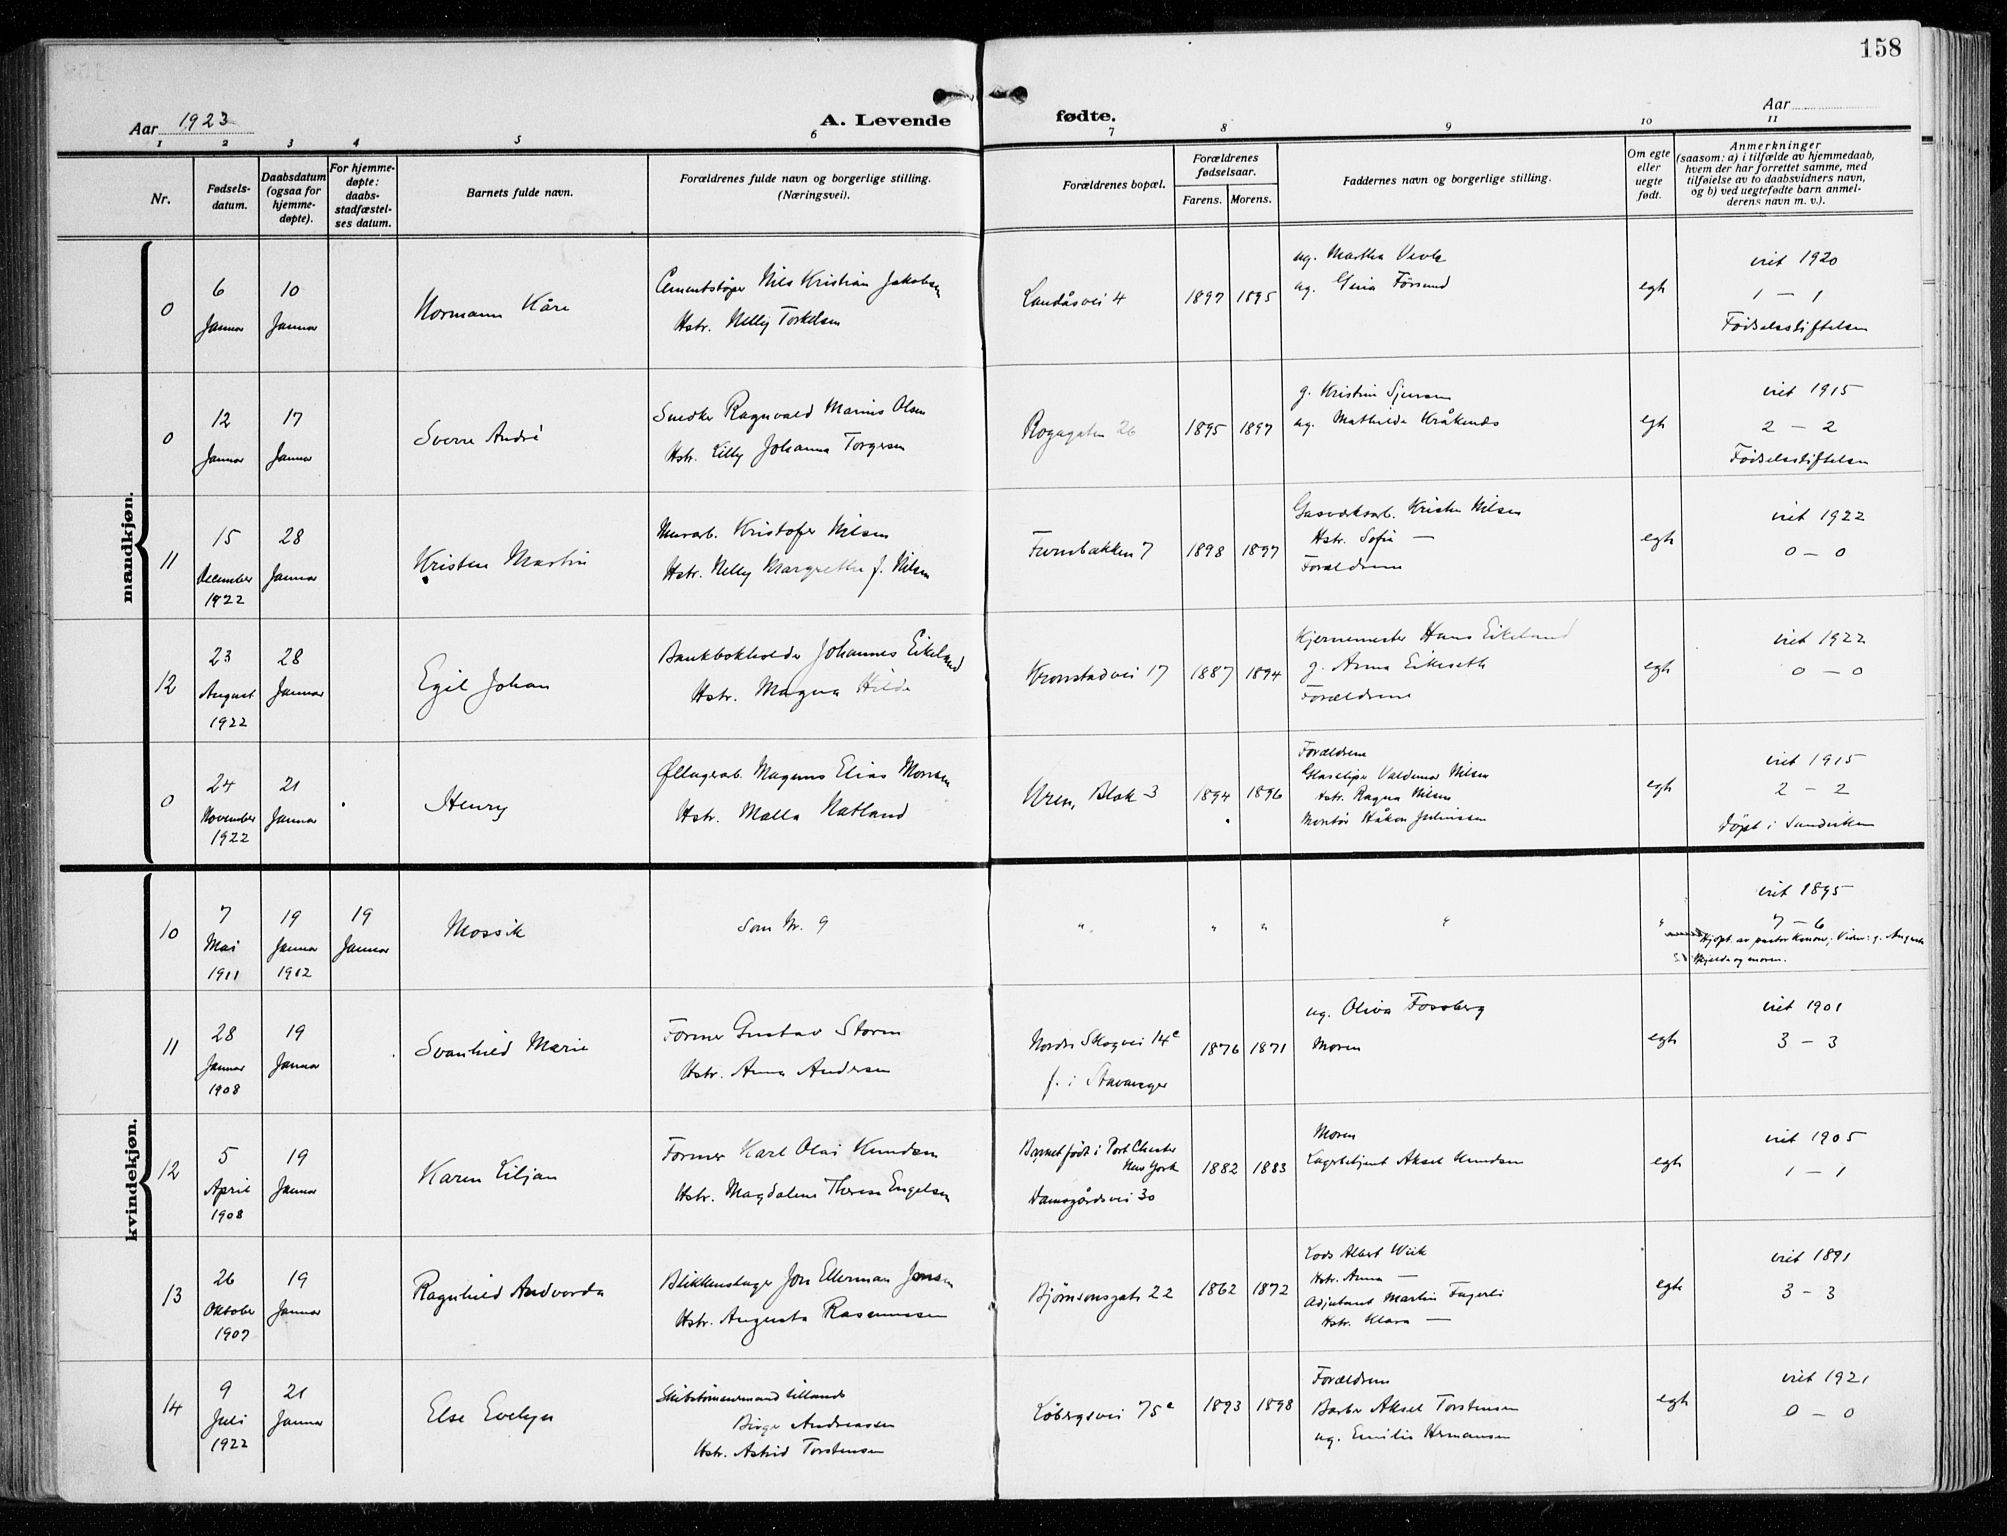 158
Aar 1923
A. Levende
fødte.
Aar
1 2 3 4 5 6 7 8 9 10 11
Nr.
Fødsels-
datum.
Daabsdatum
(ogsaa for
hjemme-
døpte).
For hjemme-
døpte:
daabs-
stadfæstel-
ses datum.
Barnets fulde navn.
Forældrenes fulde navn og borgerlige stilling.
(Næringsvei).
Forældrenes bopæl.
Forældrenes
fødselsaar.
Farens. Morens.
Faddernes navn og borgerlige stilling.
Om egte
eller
uegte
født.
Anmerkninger
(saasom: a) i tilfælde av hjemmedaab,
hvem der har forrettet samme, med
tilføielse av to daabsvidners navn,
og b) ved uegtefødte barn anmel-
derens navn m. v.).
mandkjøn.
0
6
Januar
10
Januar
Normann Kåre
Cementstøper Nils Kristian Jakobsen
Hstr. Nelly Torkelsen
Landåsvei 4
1897 1895
ug. Martha
ug. Gina Førsund
egte
viet 1920
1 – 1
Fødselsstiftelsen
0
12
Januar
17
Januar
Sverre André
Snedker Ragnvald Marius Olsen
Hstr. Lilly Johanna Torgersen
26
1895 1897
g. Kristin
ug. Mathilde Kråkenes
egte
viet 1915
2 – 2
Fødselsstiftelsen
11
15
December
1922
28
Januar
Kristen Martin
Murarb. Kristofer Nilsen
Hstr. Nelly Margrethe f. Nilsen
Furubakken 7
1898 1897
Gasværksarb. Kristen Nilsen
Hstr. Sofie —
Forældrene
egte
viet 1922
0 – 0
12
23
August
1922
28
Januar
Egil Johan
Bankbokholder Johannes Eikeland
Hstr. Magna Hilde
Kronstadvei 17
1887 1894
Gjernemester Hans Eikeland
g. Anna Eikeseth
Forældrene
egte
viet 1922
0 – 0
0
24
November
1922
21
Januar
Henry
Øllagerarb. Magnus Elias Monsen
Hstr. Malla Natland
Uren, Blok 3
1894 1896
Forældrene
Glassliper Valdemar Nilsen
Hstr. Ragna Nilsen
Montør Håkon Juliussen
egte
viet 1915
2 – 2
Døpt i Sandviken
kvindekjøn.
10
7
Mai
1911
19
Januar
1912
19
Januar
Mossik
Som Nr. 9
" " " " "
viet 1895
7 – 6
Hjdpt. av pastor Konow; Vidn: g. Augusta
Kjelde og moren.
11
28
Januar
1908
19
Januar
Svanhild Marie
Former Gustav Storm
Hstr. Anna Andersen
Nordre Skogvei 14c
f. i Stavanger
1876 1871
ug. Oliva Fossberg
Moren
egte
viet 1901
3 – 3
12
5
April
1908
19
Januar
Karen Liljan
Former Karl Olai Knudsen
Hstr. Magdalene Therese Engelsen
Barnet født i Port Chester
New York
Damsgårdsvei 30
1882 1883
Moren
Lagerbetjent Aksel Knudsen
egte
viet 1905
1 – 1
13
26
Oktober
1907
19
Januar
Ragnhild Andvorda
Blikkenslager Jon Ellerman Jonsen
Hstr. Augusta Rasmussen
Bjørnsonsgate 22
1862 1872
Lods Albert Wiik
Hstr. Anna —
Adjutant Martin Fagerli
Hstr. Klara —
egte
viet 1891
3 – 3
14
9
Juli
1922
21
Januar
Else Evelyn
Skibstømmermand tillands
Birger Andreassen
Hstr. Astrid Torstensen
Løbergsvei 75c
1893 1898
Forældrene
Barber Aksel Torstensen
ug. Emilie Hermansen
egte
viet 1921
0 – 0